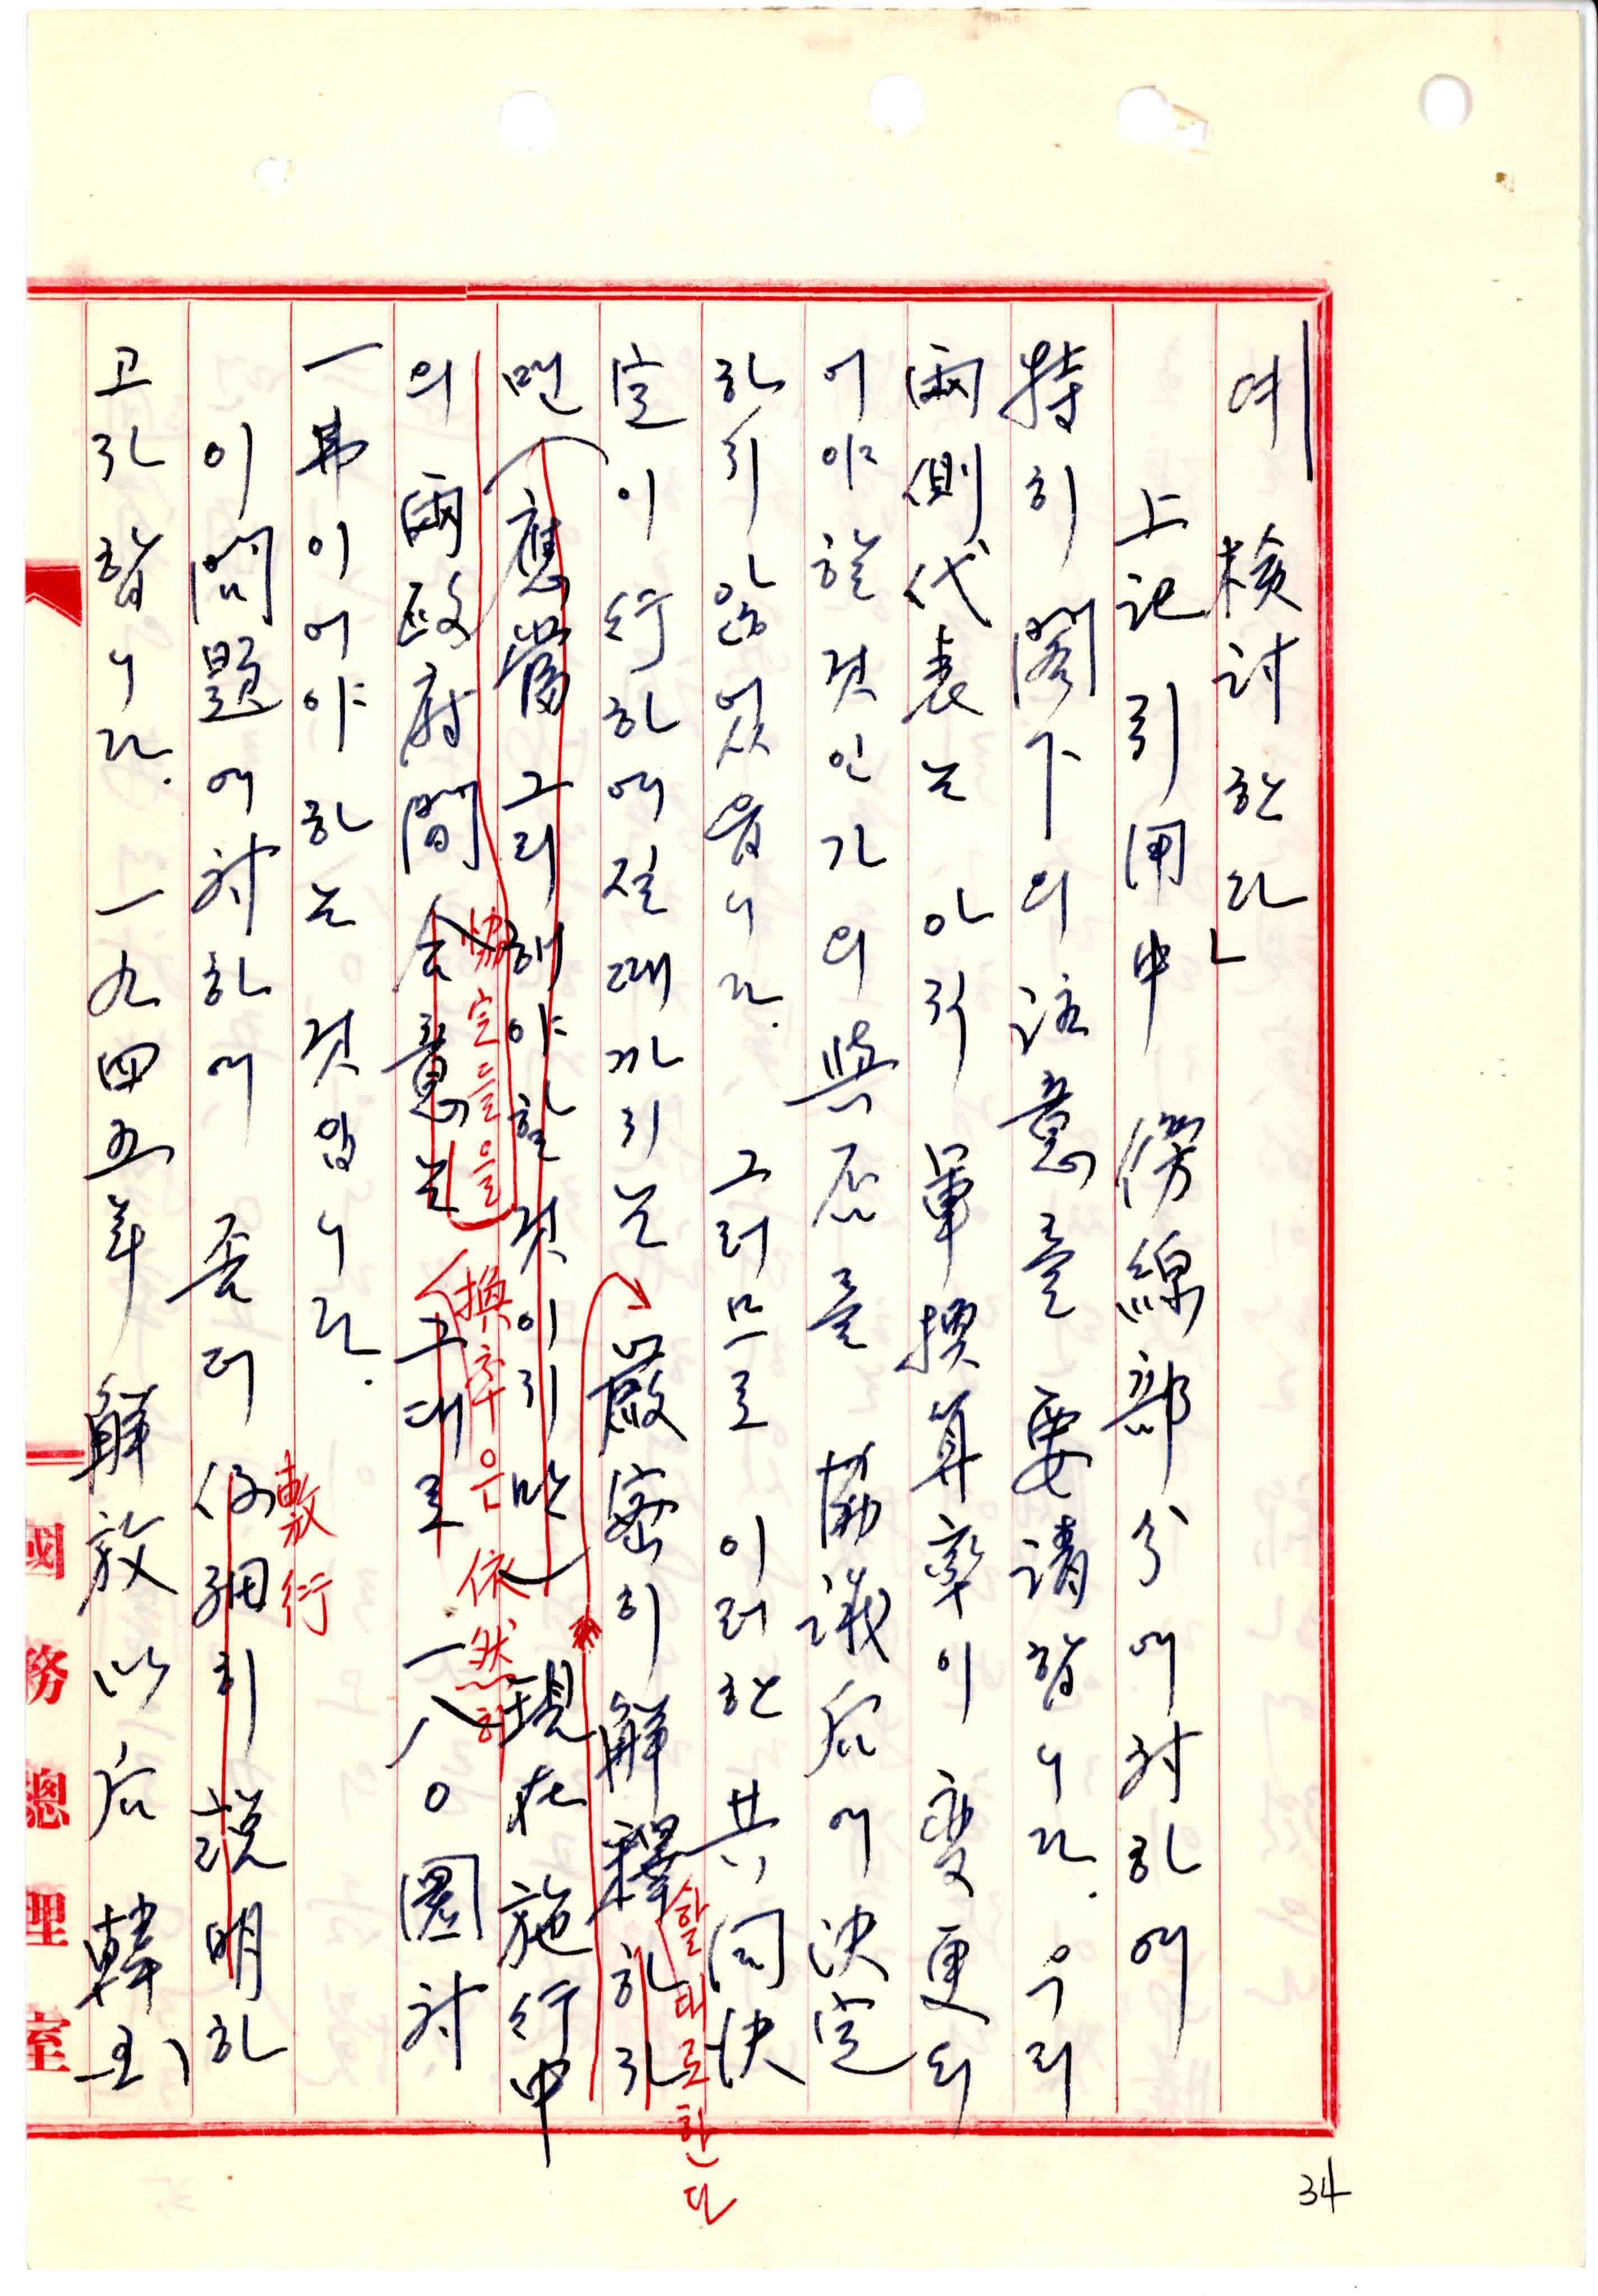 여 檢討한다」
上記 引用中 傍線部分에 対하여
特히 閣下의 注意를 要請합니다. 우리
兩側代表는 아직 單 換算率이 変更되
어야 할 것인가의 與否를 協議后에 決定
하지 않았읍니다. 그러므로 이러한 共同決
定이 行하여질때까지는 嚴密히 解釋하자
할대로한다
면 (應當 그리해야할 것이지만) 現在 施行中
協定들을 換率은 依然히
의 兩政府間 合意는 그대로 一八〇圜 対
一弗이어야 하는 것입니다.
이 問題에 対하여 좀더 仔細히 説明하
敷衍
고저합니다. 一九四五年 解放以后 韓国
國務總理室
34